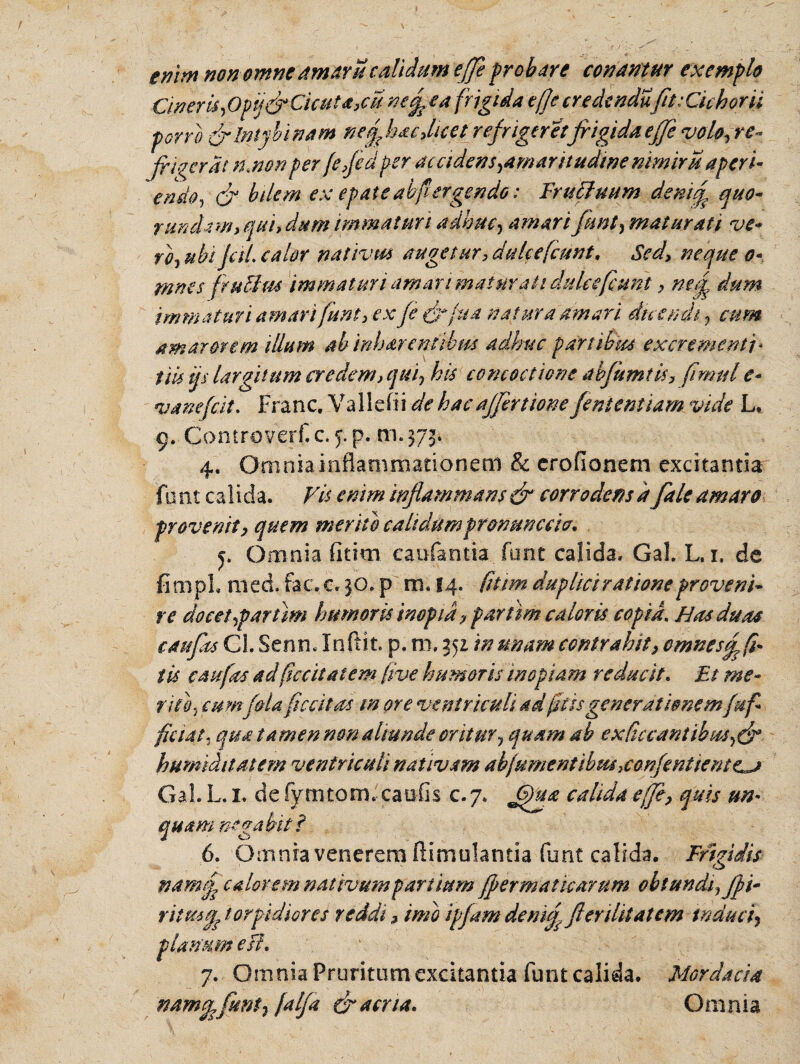 enim non omne amarũ calidum esse probare conantur exemplo
Cineris, Opij & Cicutæ, cũ neq; ea frigida esse credendũ sit: Cichorii
porrò & Intybi nam neq; hæc, licet refrigerēt frigida esse volo, re-
frigerāt n. non per se, sed per accidens, amaritudine nimirũ aperi-
endo, & bilem ex epate abstergendo: Fructuum deniq; quo-
rundam, qui, dum immaturi adhuc, amari sunt, maturati ve-
rò, ubi scil. calor nativus augetur, dulcescunt. Sed, neque o-
mnes fructus immaturi amari maturati dulcescunt, neq; dum
immaturi amari sunt, ex se & sua natura amari dicendi, cum
amarorem illum ab inhærentibus adhuc partibus excrementi-
tiis ijs largitum credem, qui, his concoctione absumtis, simul e-
vanescit. Franc. Vallesii de hac assertione sententiam vide L.
9. Controvers. c. 5. p. m. 373.
4. Omnia inflammationem & erosionem excitantia
sunt calida. Vis enim inflammans & corrodens à sale amaro
provenit, quem meritò calidum pronunccio.
5. Omnia sitim causantia sunt calida. Gal. L. 1. de
simpl. med. fac. c. 30. p m. 14. sitim duplici ratione proveni-
re docet, partim humoris inopiâ, partim caloris copiâ. Has duas
causas Cl. Senn. Instit. p. m. 352 in unam contrahit, omnesq; si-
tis causas ad siccitatem sive humoris inopiam reducit. Et me-
ritò, cum sola siccitas in ore ventriculi ad sitis generationem suf-
ficiat, quæ tamen non aliunde oritur, quam ab exsiccantibus, &
humiditatem ventriculi nativam absumentibus, consentiente
Gal. L. 1. de symtom. causis c. 7. Quæ calida esse, quis un-
quam negabit?
6. Omnia venerem stimulantia sunt calida. Frigidis
namq; calorem nativum partium spermaticarum obtundi, spi-
ritusq; torpidiores reddi, imò ipsam deniq; sterilitatem induci,
planum est.
7. Omnia Pruritum excitantia sunt calida. Mordacia
namq; sunt, salsa & acria. Omnia